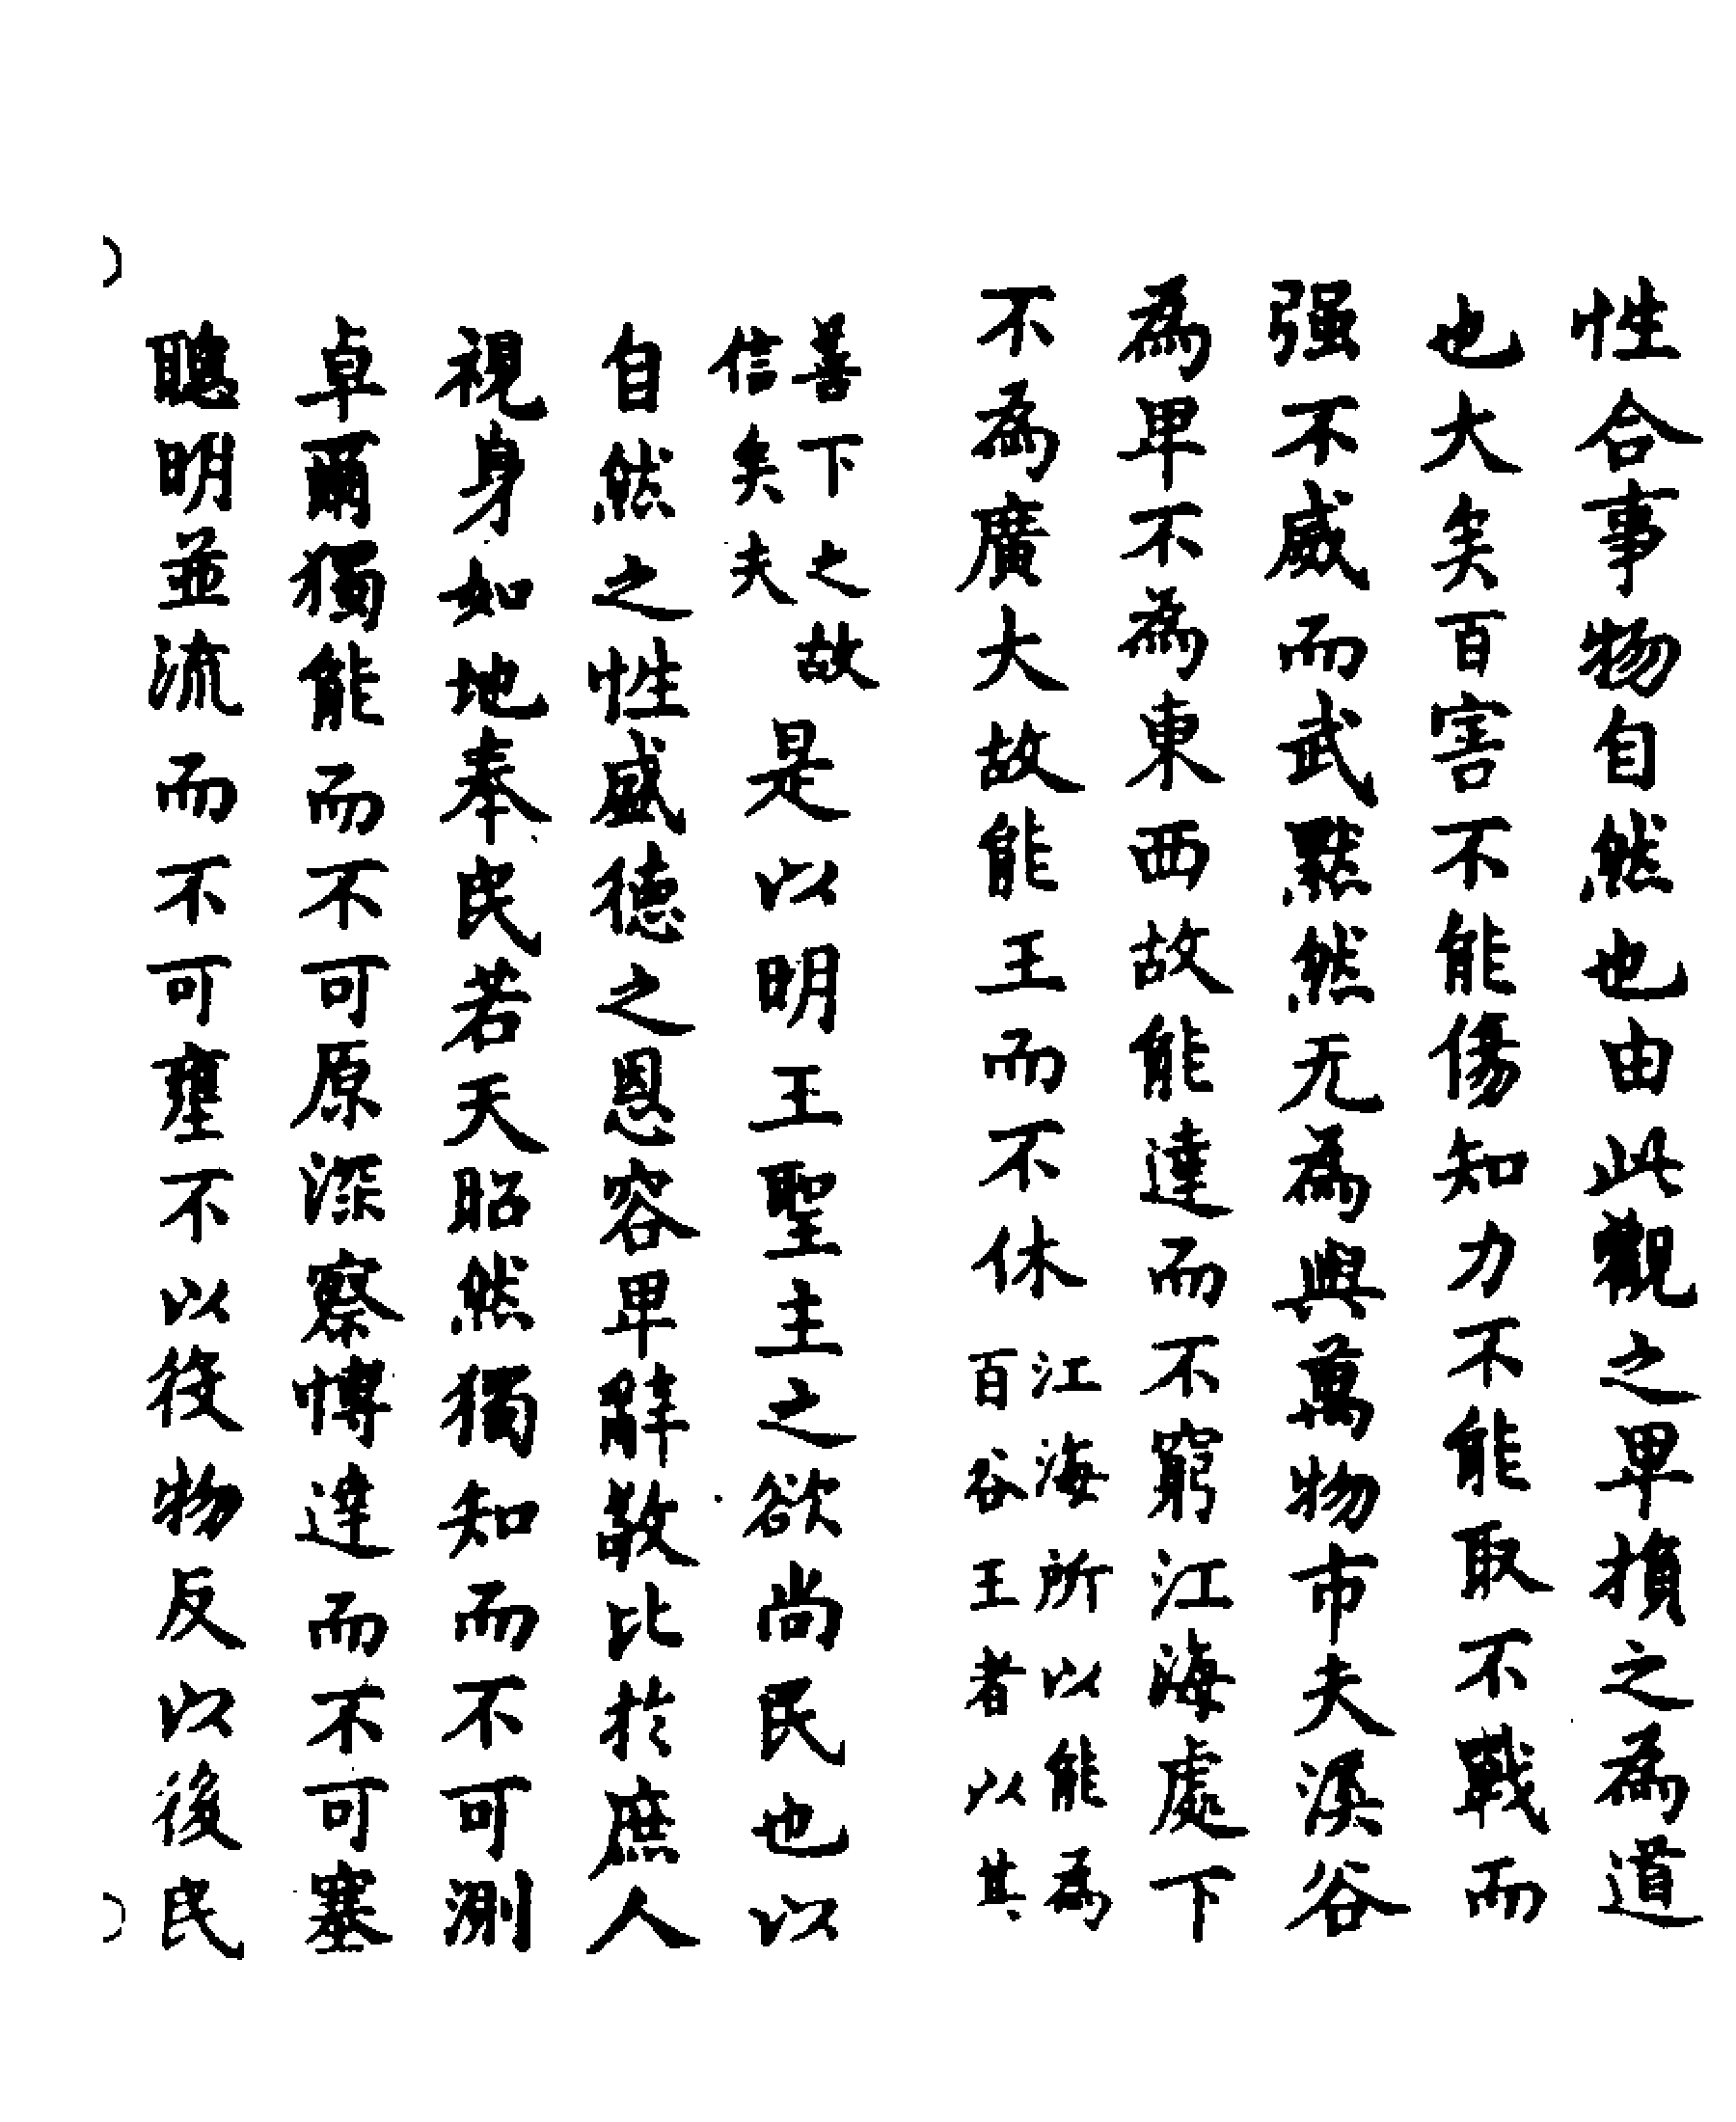 性合事物自然也由此觀之卑損之為道
也大矣百害不能傷知力不能取不戰而
强不威而武默然无為與萬物市夫溪谷
為卑不為東西故能達而不窮江海處下
不為廣大故能王而不休
江海所以能為
百谷王者以其
善下之故
信矣夫
是以明王聖主之欲尚民也以
自然之性盛德之恩容卑辭敬比於庶人
視身如地奉民若天昭然獨知而不可測
卓爾獨能而不可原深察博達而不可塞
聰明並流而不可壅不以役物反以後民